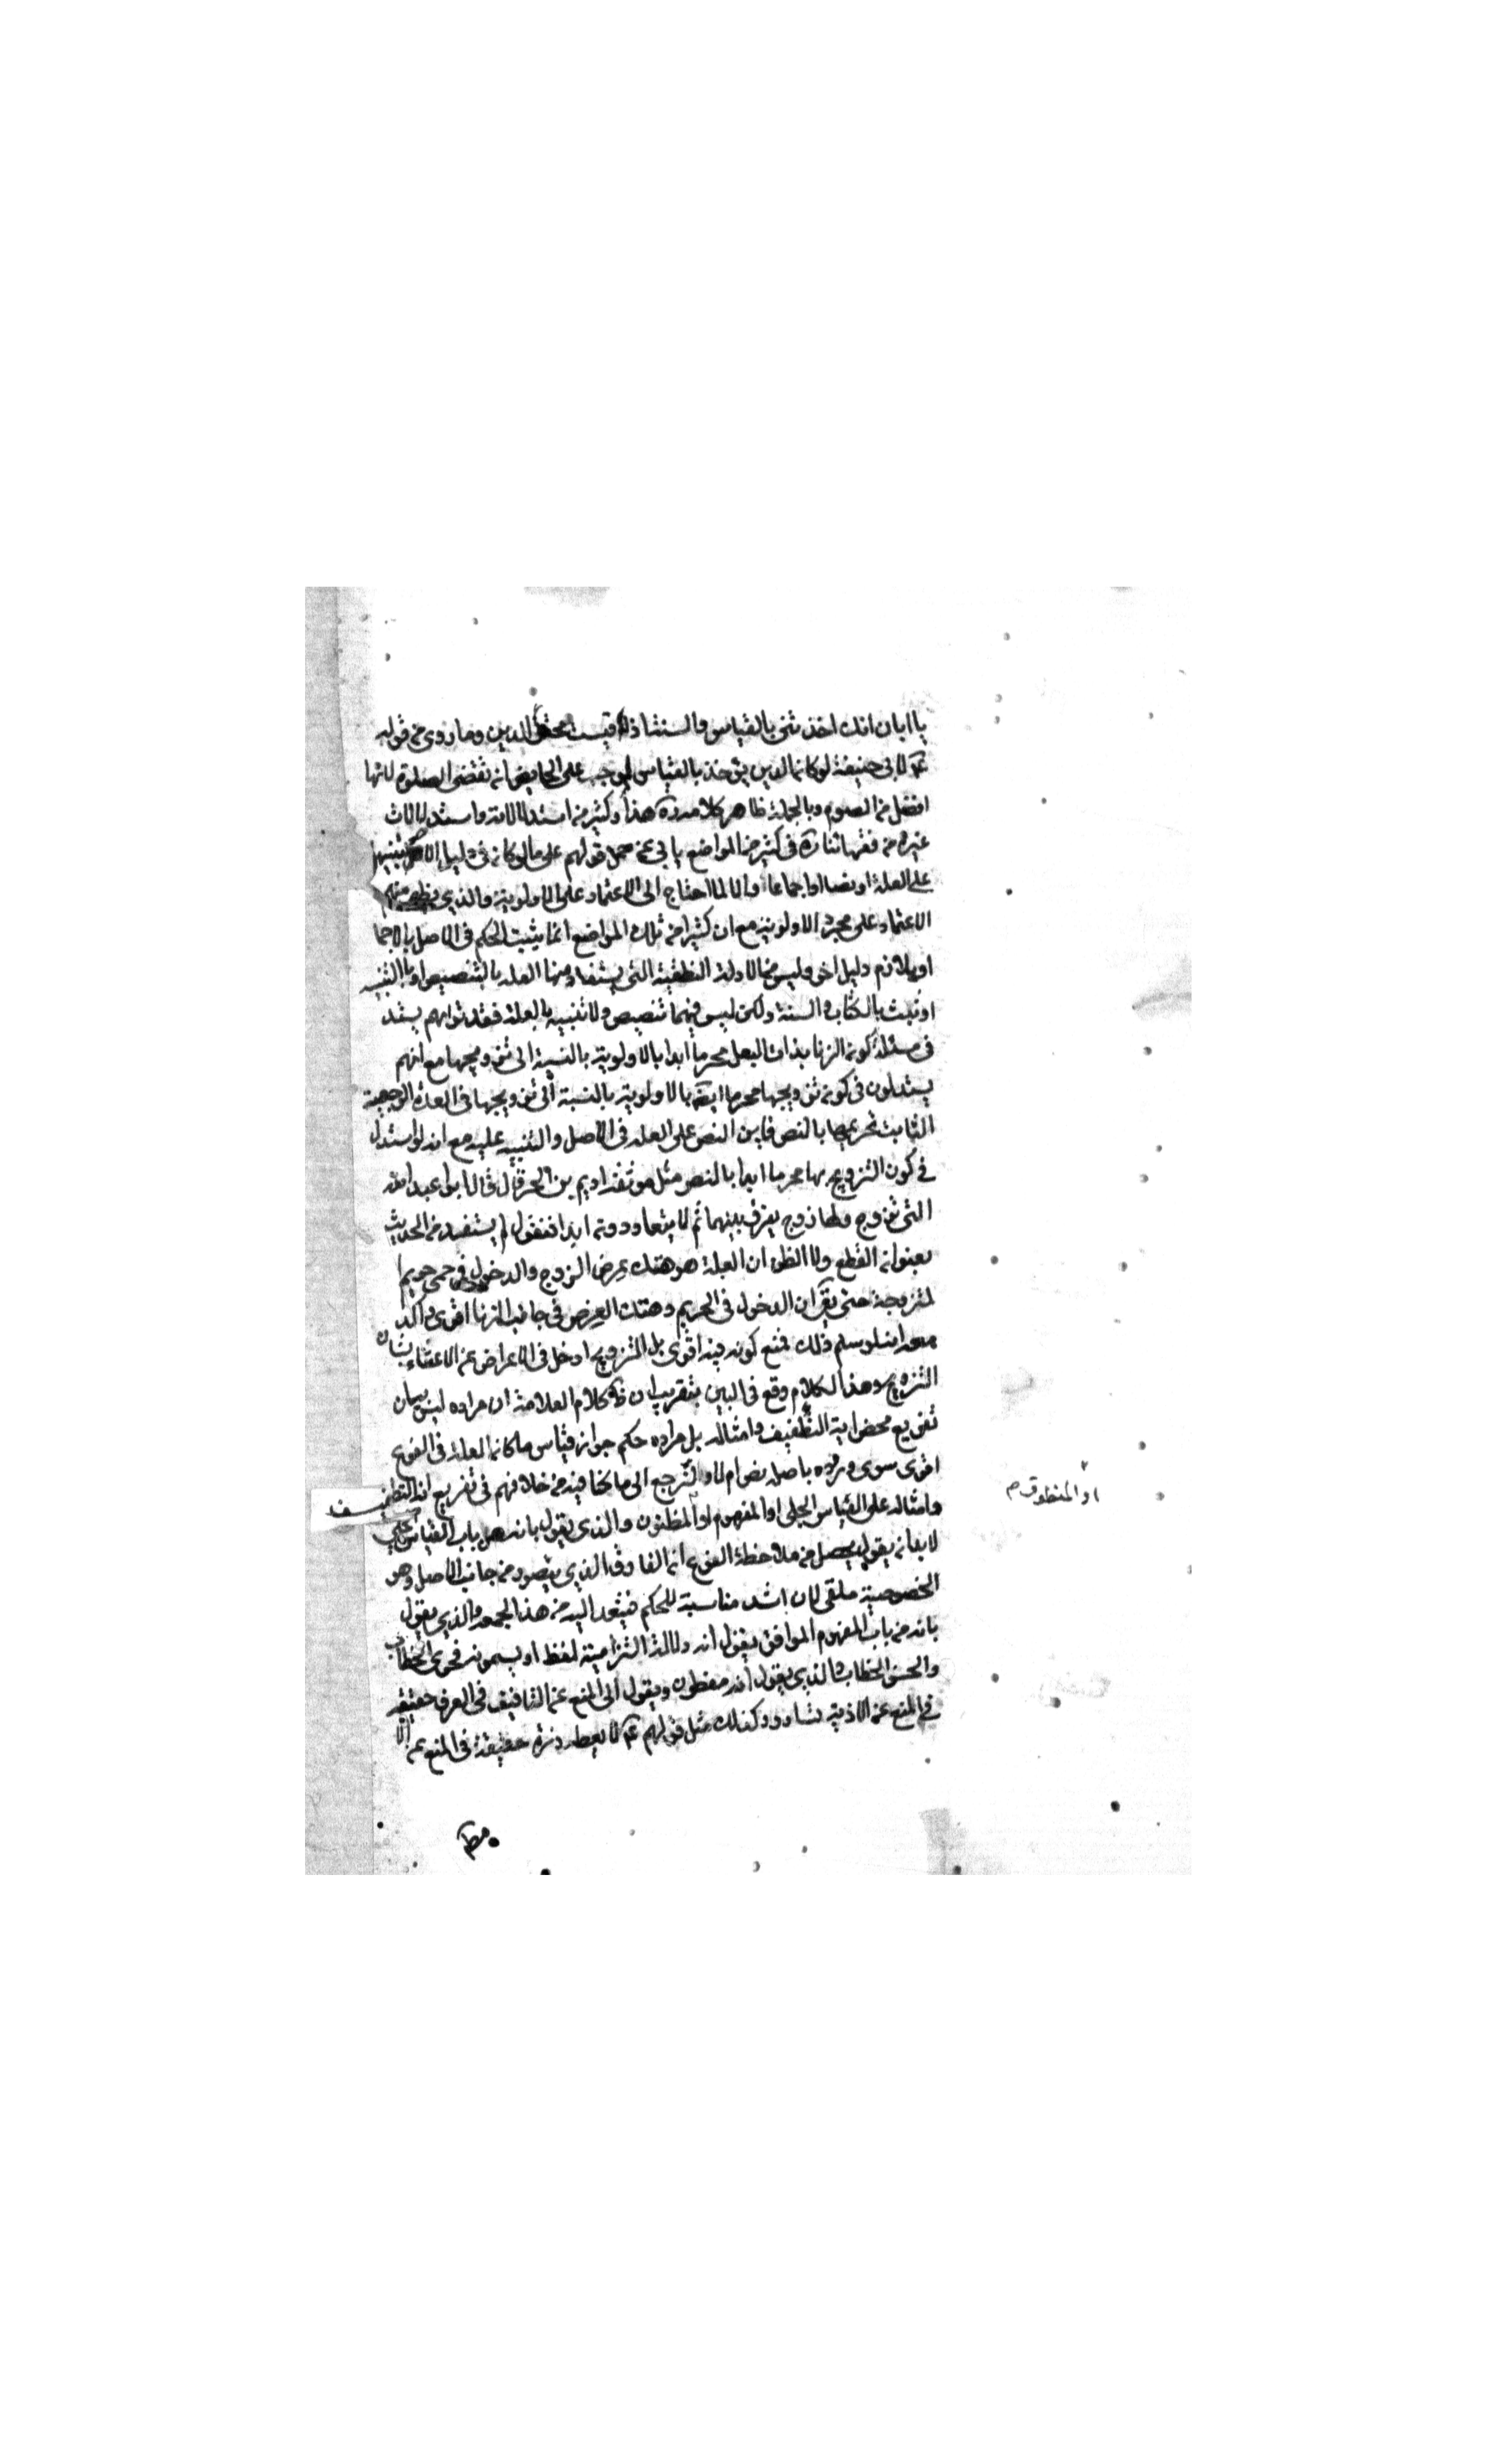 يا ابان انك اخذتنى بالقياس والسنة اذا قيست محق الدين وما روى من قوله
عم لابى حنيفة لو كان الدين يؤخذ بالقياس لوجب على الحايض ان تقضى الصلوة لانها
افضل من الصوم وبالجملة ظاهر كلامه ره هذا وكثير من استدلالاته واستدلالات
غيره من فقهائنا ره فى كثير من المواضع يابى عن حمل قولهم على ما لو كان فى دليل الاصل تنبيها
على العلة او نصا او اجماعا والا لما احتاج الى الاعتماد على الاولوية والذى يظهر منهم
الاعتماد على مجرد الاولوية مع ان كثيرا من تلك المواضع انما يثبت الحكم فى الاصل بالاجما
او بملازم دليل اخر وليس من الادلة اللفظية التى يستفاد منها العلة بالتنصيص او بالتنبيه
او ثبت بالكتاب والسنة ولكن ليس فيهما تنصيص ولا تنبيه بالعلة فقد تراهم
فى مسئلة كون الزنا بذات البعل محرما ابدا بالاولوية بالنسبة الى تزويجها مع انهم
يستدلون فى كون تزويجها محرما ايضا بالاولوية بالنسبة الى تزويجها فى العدة الرجعية
الثابت تحريمها بالنص فاين النص على العلة فى الاصل والتنبيه عليه مع انه لو استدل
فى كون التزويج بها محرما ابدا بالنص مثل موثقة اديم بن الحر قال قال ابو عبد الله
التى تتزوج ولها زوج يفرق بينهما ثم لا يتعاودون ابدا فنقول لم يستفد من الحديث
بعنوان القطع ولا الظن ان العلة هو هتك عرض الزوج والدخول فى حمى حريم
لمتزوجة حتى يق ان الدخول فى الحريم وهتك العرض فى جانب الزنا اقوى واكد
مع انه لو سلم ذلك فنمنع كونه فيه اقوى بل التزويج ادخل فى الاعراض عن الاعتناء بشان
التزويج وهذا الكلام وقع فى البين بتقريب ان ظ كلام العلامة ان مراده ليس بيان
تفريع محض اية التافيف وامثاله بل مراده حكم جواز قياس ما كان العلة فى الفرع
اقوى سوى ورده باصله بنص ام لا ولنرجع الى ما كنا فيه من خلافهم فى تفريع اية التافيف
وامثاله على القياس الجلى او المفهوم او المنطوق والذى يقول بانه من باب القياس الجلى
لا بد ان يقول يحصل من ملاحظة الفرع ان الفارق الذى يتصور من جانب الاصل وهو
الخصوصية ملقى لان اشد مناسبة للحكم فيتعدى اليه من هذا الجهة والذى يقول
بانه من باب المفهوم الموافق يقول انه دلالة التزامية لفظا ويسمونه فحوى الخطاب
والحن الخطاب والذى يقول انه منطوق ويقول ان المنع عن التافيف فى العرف حقيقة
فى المنع عن الاذية وكذلك مثل قولهم عم لا يعط ذرة حقيقة فى المنع عن الا
او المنطوق م